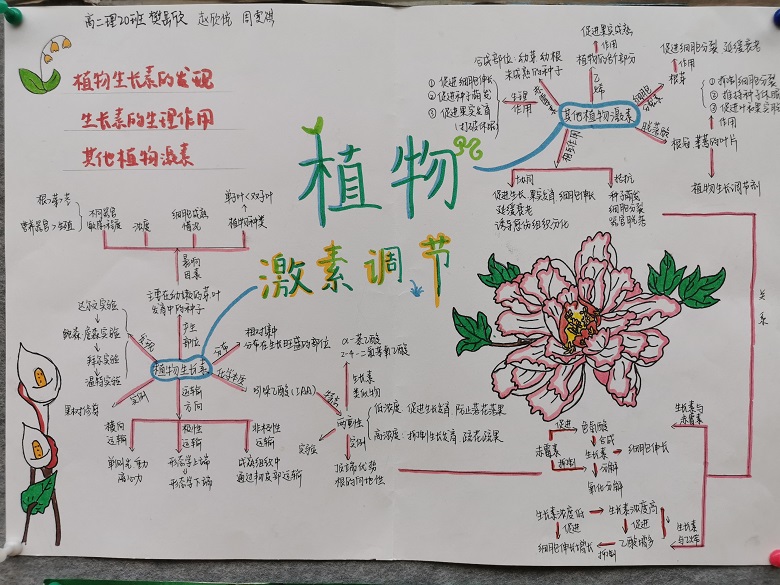 高二理20班 樊晨欣 赵欣怡
植物生长素的发现
生长素的生理作用
其他植物激素
植物
激素调节
其他植物激素
合成部位: 幼芽 幼根
未成熟的种子
赤霉素
生理
作用
① 促进细胞伸长
② 促进种子萌发
③ 促进果实发育
(打破休眠)
促进果实成熟
作用
植物的各部分
乙
烯
促进细胞分裂 延缓衰老
作用
根芽
细胞
分裂素
① 抑制细胞分裂
② 维持种子休眠
作用
脱落酸
根冠 萎蔫的叶片
植物生长调节剂
相互作用
协同
促进生长 果实发育 细胞伸长
延缓衰老
诱导愈伤组织分化
拮抗
种子萌发
细胞分裂
器官脱落
关系
根>芽>茎
营养器官>生殖
不同器官
敏感程度
浓度
细胞成熟
情况
单子叶<双子叶
植物种类
影响
因素
主要在幼嫩的芽叶
发育中的种子
产生
部位
植物生长素
达尔文实验
鲍森·詹森实验
拜尔实验
温特实验
实验
实例
果树修剪
分布
相对集中
分布在生长旺盛的部位
化学本质
吲哚乙酸(IAA)
运输
方向
横向
运输
单侧光、重力
离心力
极性
运输
形态学上端
形态学下端
非极性
运输
成熟组织中
通过韧皮部运输
α-萘乙酸
2-4-二氯苯氧乙酸
生长素
类似物
特点
两重性
低浓度 促进生长发育 防止落花落果
高浓度: 抑制生长发育 疏花蔬果
实例
顶端优势
根的向地性
生长素与
赤霉素
促进
色氨酸
合成
赤霉素
生长素
细胞伸长
抑制
分解
氧化分解
生长素浓度低
生长素浓度高
促进
促进
生长素
与乙烯
细胞伸长增长
抑制
乙烯增多